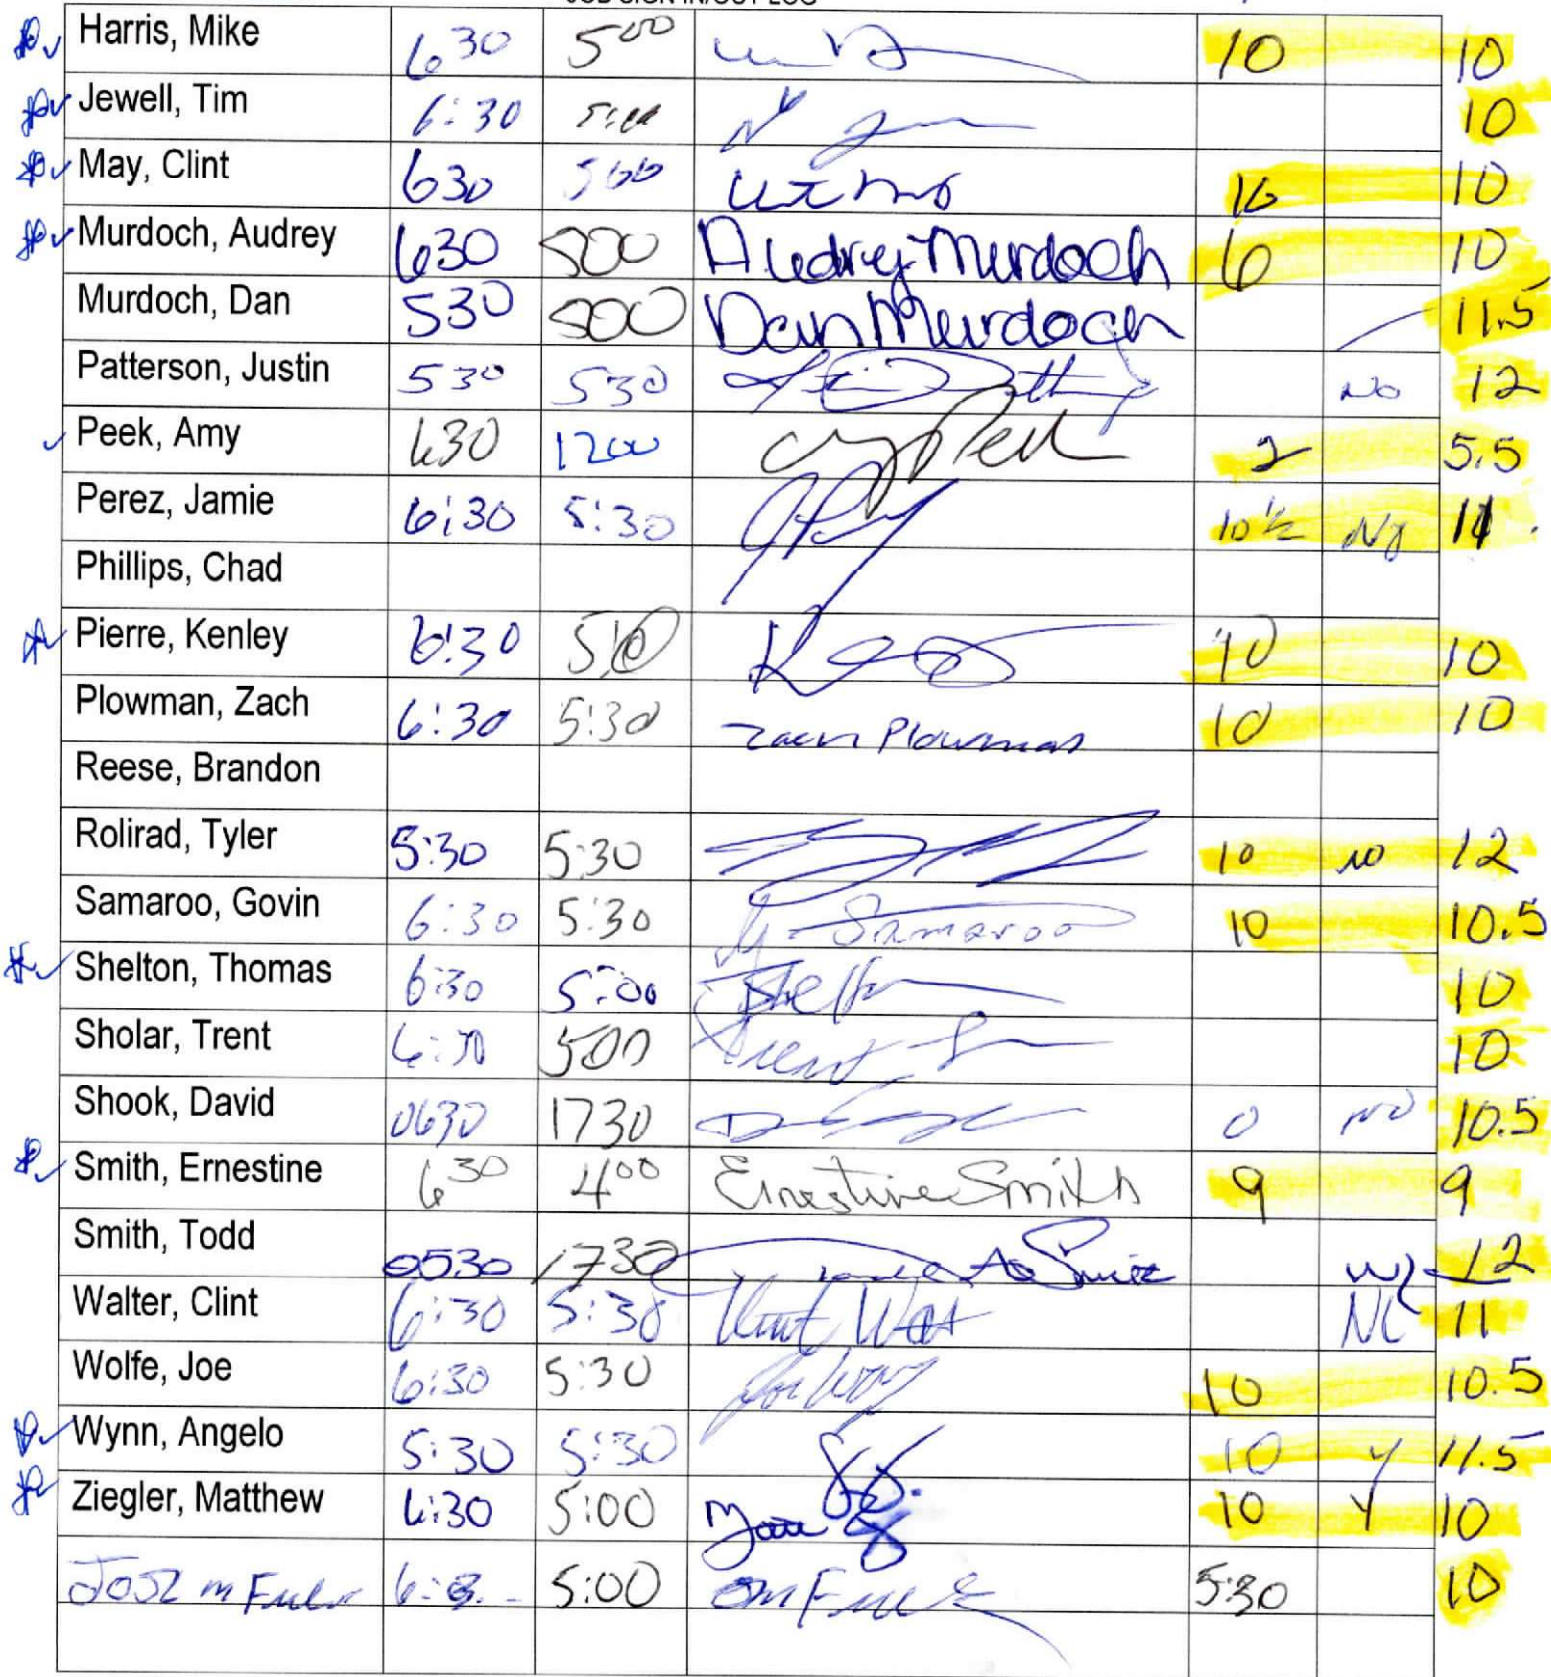 JOB SIGN IN/OUT LOG
Harris, Mike 6 30 5 00 10 10
Jewell, Tim 6:30 5:00 10
May, Clint 630 500 10 10
Murdoch, Audrey 630 500 Audrey Murdoch 6 10
Murdoch, Dan 530 500 Dan Murdoch 11.5
Patterson, Justin 530 530 No 12
Peek, Amy 630 1200 2 5.5
Perez, Jamie 6:30 5:30 10 1/2 No 11
Phillips, Chad
Pierre, Kenley 6:30 10 10
Plowman, Zach 6:30 5:30 Zach Plowman 10 10
Reese, Brandon
Rolirad, Tyler 5:30 5:30 10 no 12
Samaroo, Govin 6:30 5:30 G. Samaroo 10 10.5
Shelton, Thomas 6:30 5:00 Shelton 10
Sholar, Trent 6:30 500 Trent 10
Shook, David 0630 1730 0 no 10.5
Smith, Ernestine 6 30 4 00 Ernestine Smith 9 9
Smith, Todd 0530 1730 12
Walter, Clint 6:30 5:30 11
Wolfe, Joe 6:30 5:30 10 10.5
Wynn, Angelo 5:30 5:30 10 y 11.5
Ziegler, Matthew 6:30 5:00 10 Y 10
5:00 5:30 10